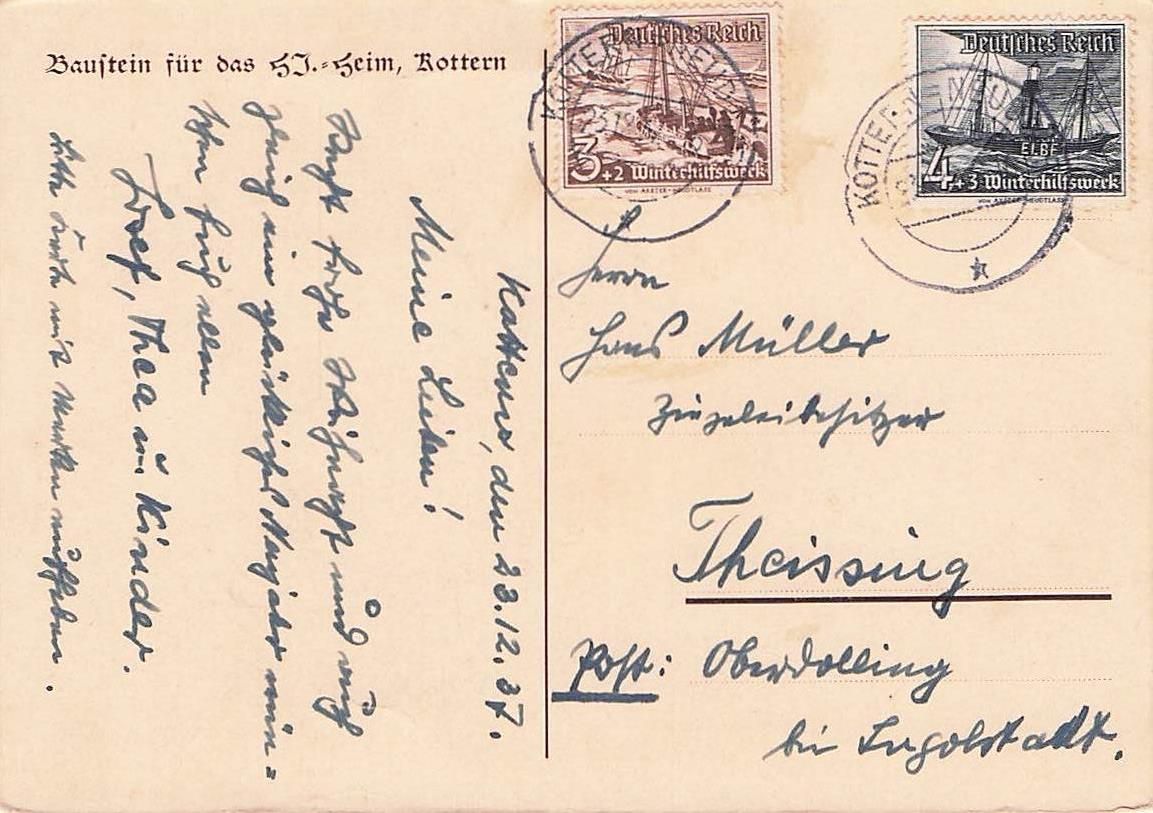 Baustein für das HJ.-Heim, Kottern
Deutsches Reich
3+2 Winterhilfswerk
Deutsches Reich
ELBE
4+3 Winterhilfswerk
KOTTERN-NEUDO
KOTTERN-NEUDO
Kottern, den 23.12.37.
Meine Lieben!
Recht frohe Weihnacht und auch
gleich ein glückliches Neujahr wün-
schen Euch allen
Josef, Thea u. Kinder.
Bitte Karte mit Marken aufheben.
Herrn
Hans Müller
Ziegeleibesitzer
Theissing
Post: Oberdolling
bei Ingolstadt.